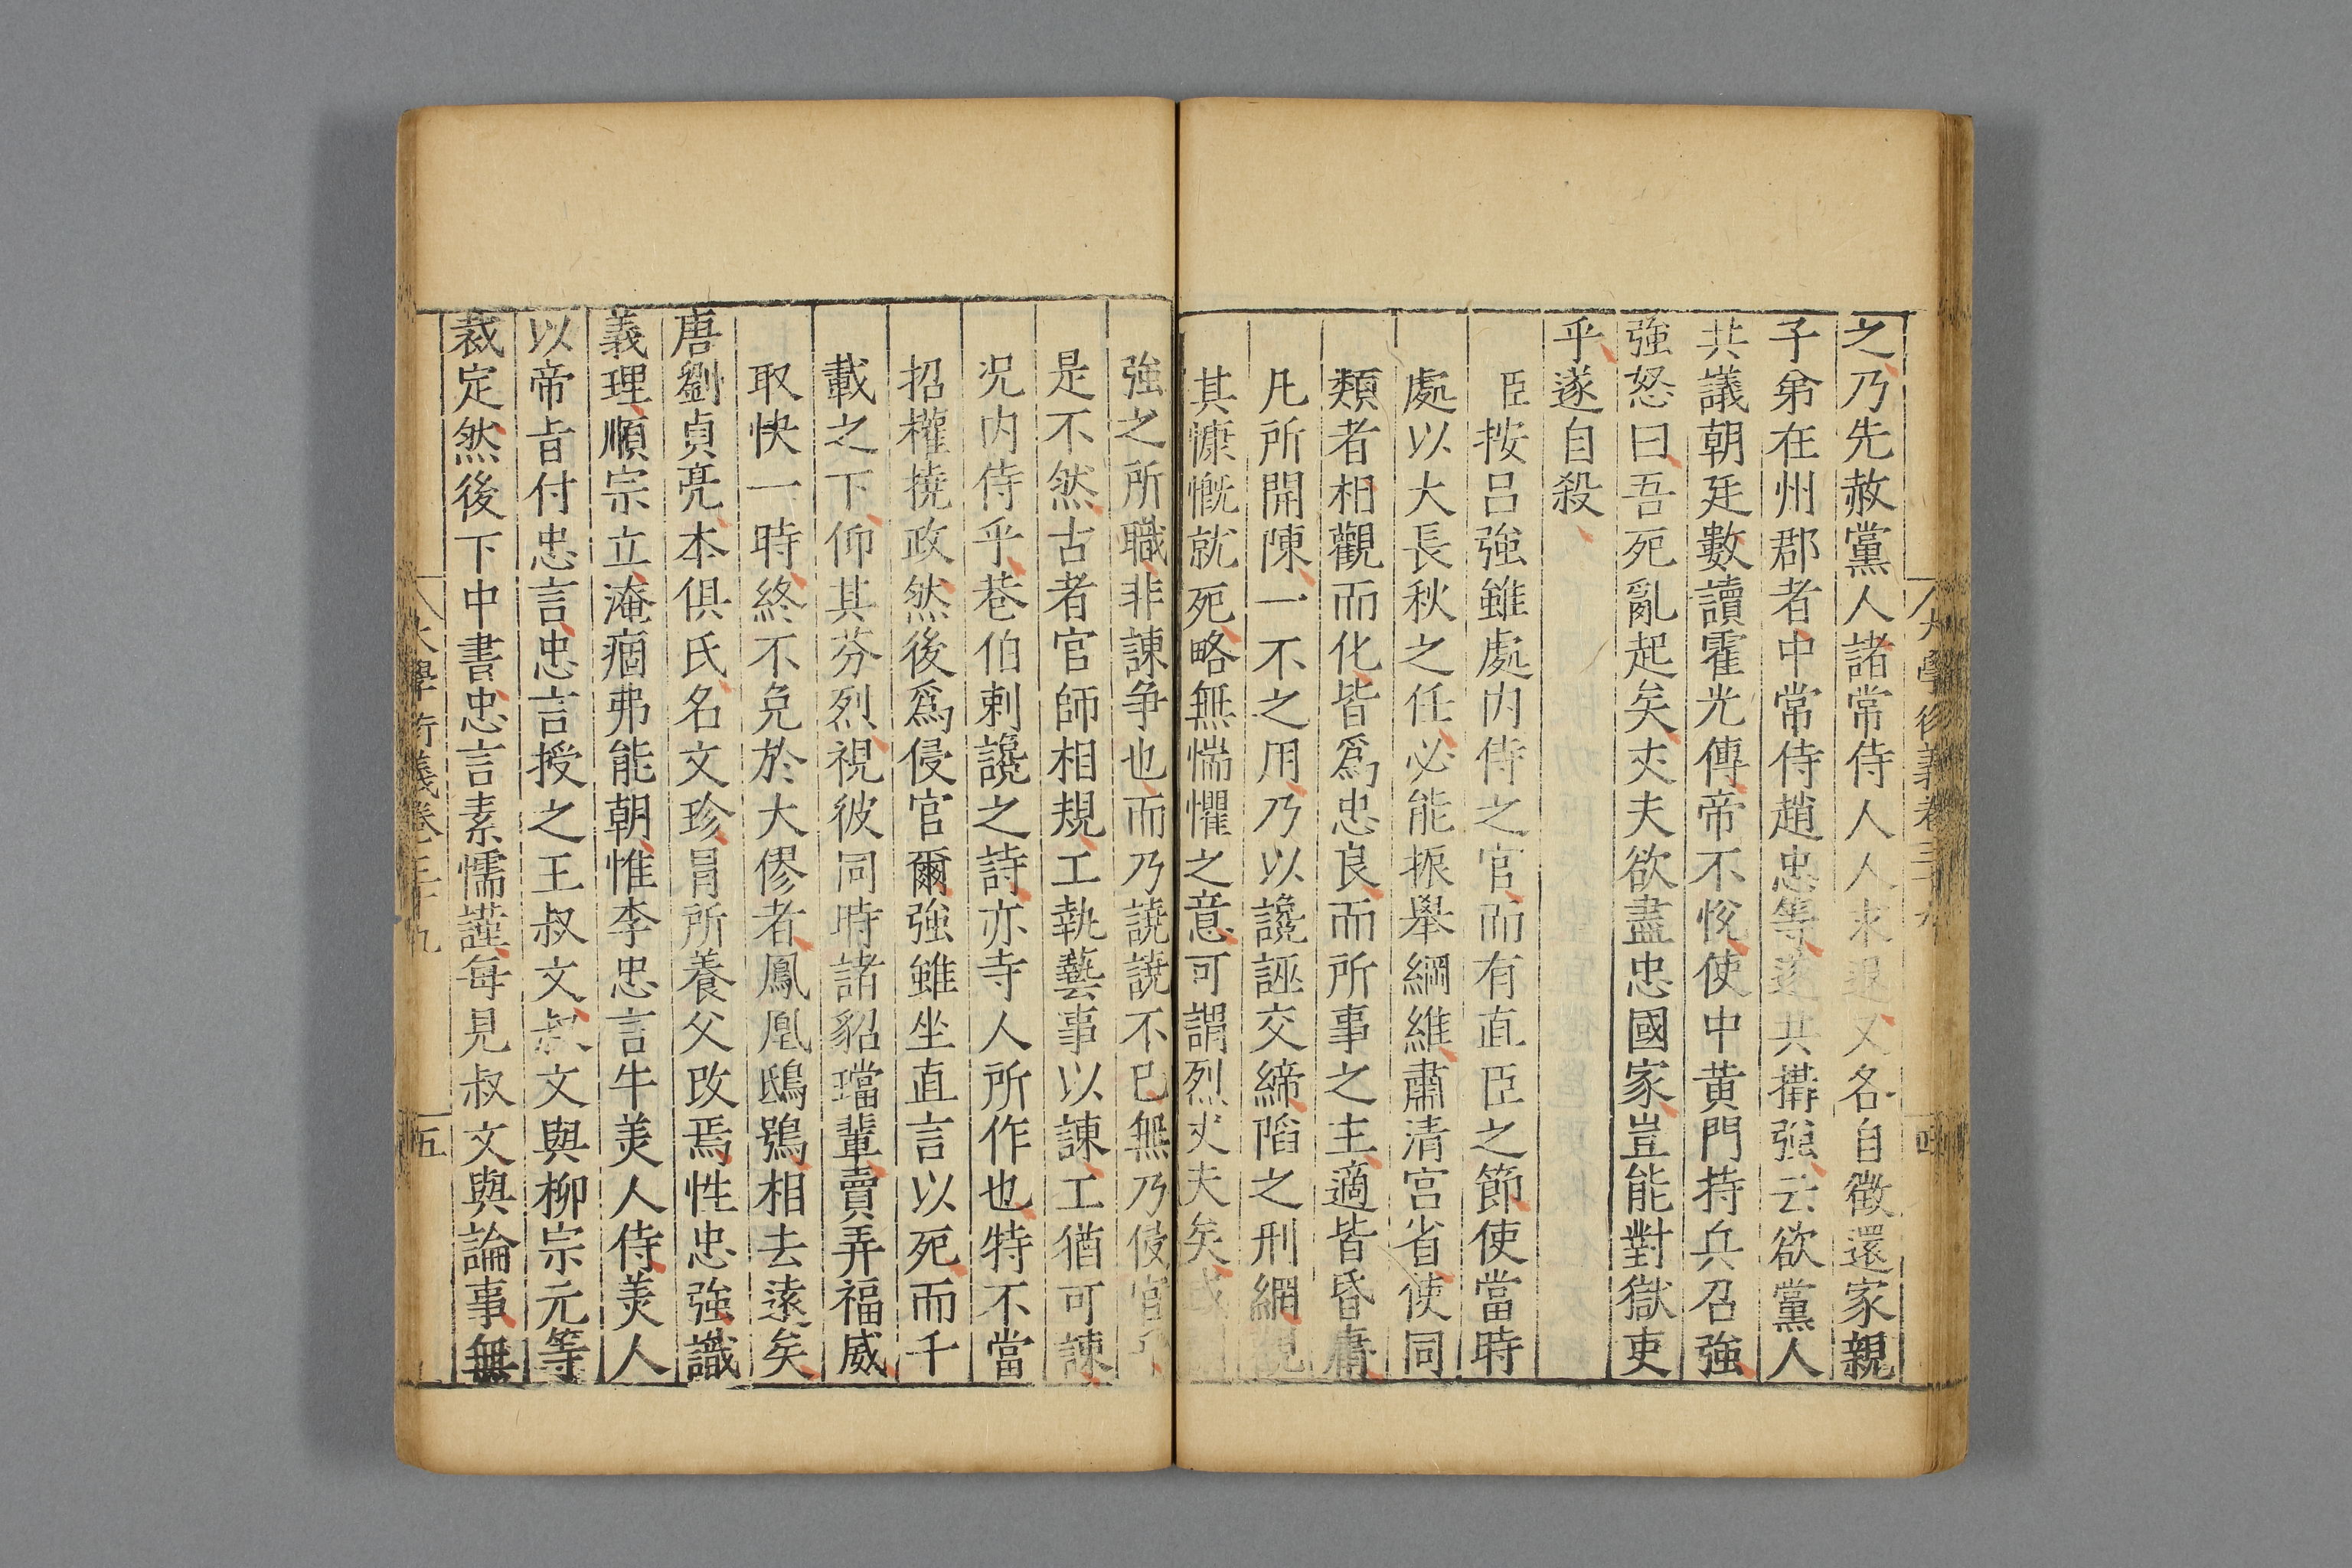 大學衍義卷三十九
四
之乃先赦黨人諸常侍人人求退又各自徵還家親
子弟在州郡者中常侍趙忠等遂共搆強云欲黨人
共議朝廷數讀霍光傳帝不悅使中黃門持兵召強
強怒曰吾死亂起矣丈夫欲盡忠國家豈能對獄吏
乎遂自殺
臣按呂強雖處内侍之官而有直臣之節使當時
處以大長秋之任必能振舉綱維肅清宮省使同
類者相觀而化皆爲忠良而所事之主適皆昏庸
凡所開陳一不之用乃以讒誣交締陷之刑網視
其慷慨就死略無惴懼之意可謂烈丈夫矣或曰
強之所職非諫争也而乃譊譊不已無乃侵官乎
是不然古者官師相規工執藝事以諫工猶可諫
况内侍乎巷伯刺讒之詩亦寺人所作也特不當
招權撓政然後爲侵官爾強雖坐直言以死而千
載之下仰其芬烈視彼同時諸貂璫輩賣弄福威
取快一時終不免於大僇者鳳凰鴟鴞相去遠矣
唐劉貞亮本俱氏名文珍冐所養父改焉性忠強識
義理順宗立淹痼弗能朝惟李忠言牛美人侍美人
以帝旨付忠言忠言授之王叔文叔文與柳宗元等
裁定然後下中書忠言素懦謹每見叔文與論事無
大學衍義卷三十九
五